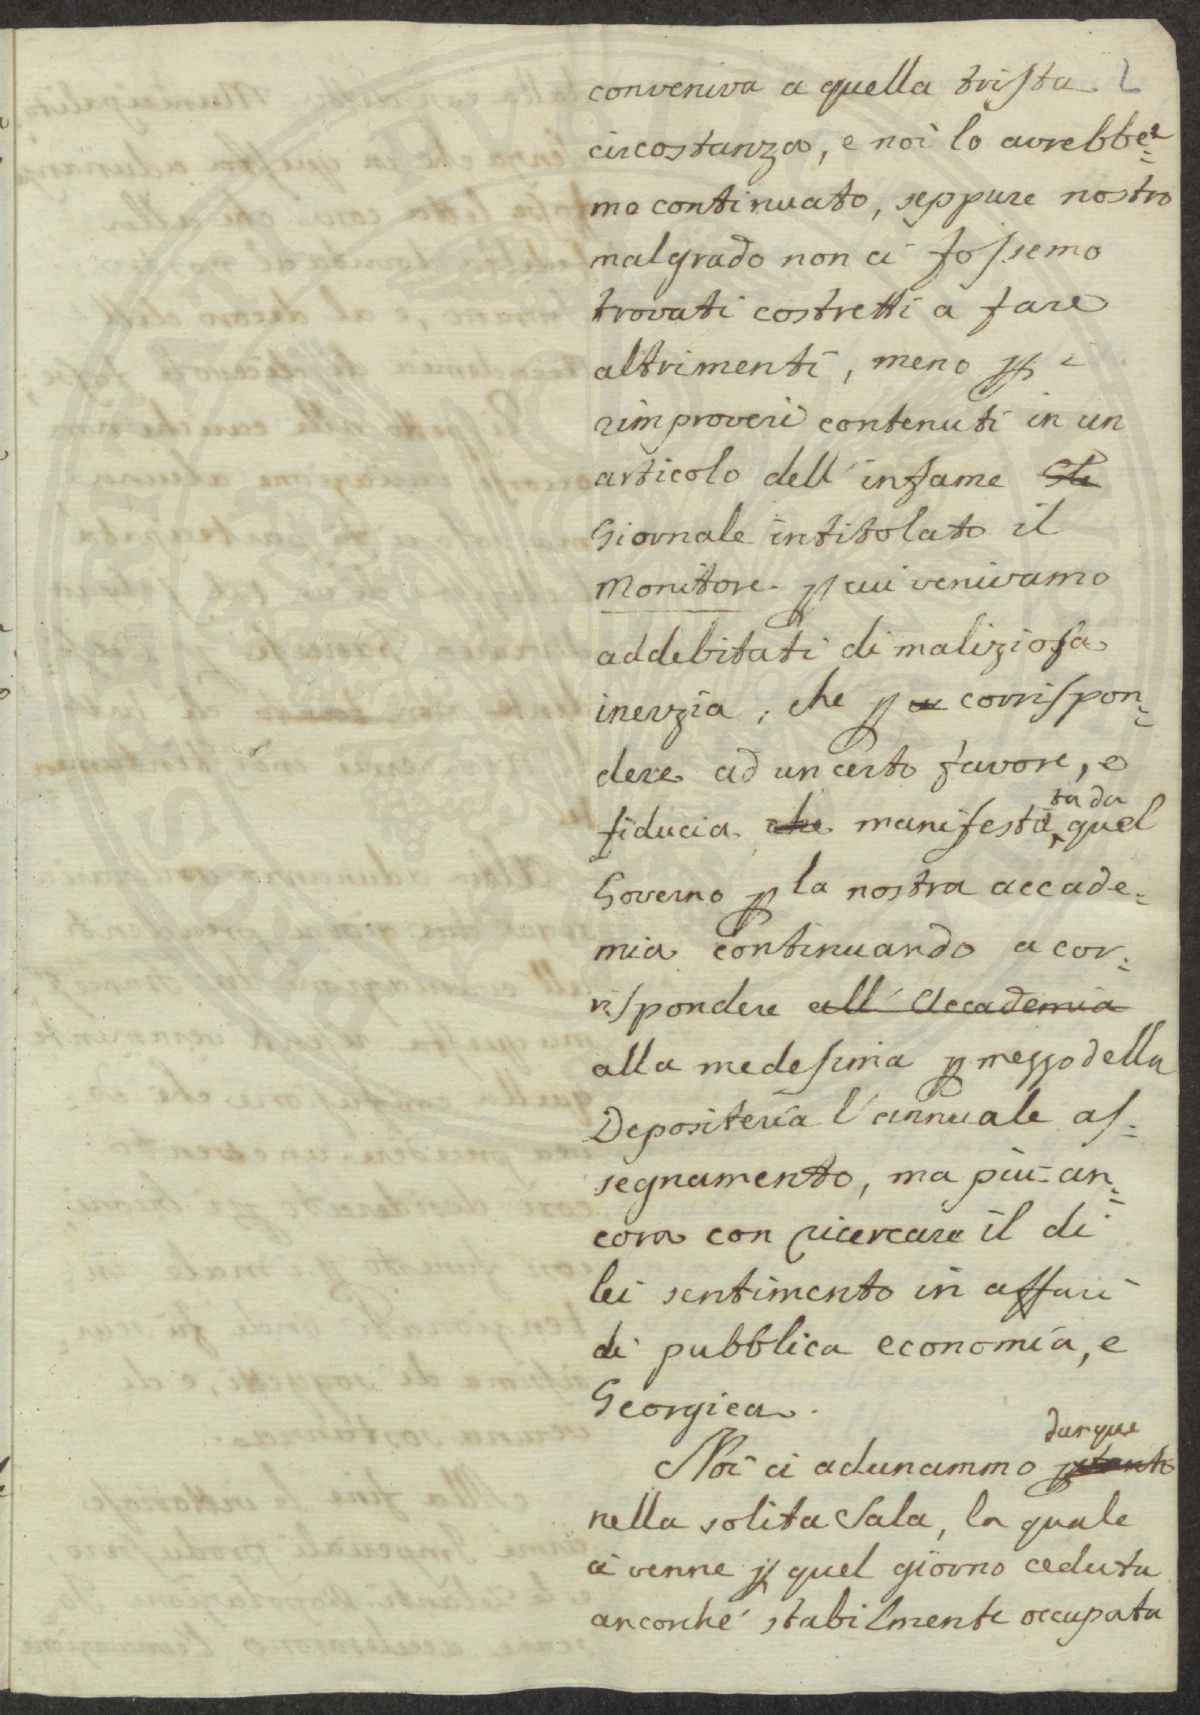 conveniva a quella trista 2
circostanza, e noi lo avrebbe=
mo continuato, seppure nostro
malgrado non ci fossemo
trovati costretti a fare
altrimenti, meno p i
rimproveri contenuti in un
articolo dell'infame
Giornale intitolato il
Monitore p cui venivamo
addebitati di maliziosa
inerzia, che p corrispon=
dere ad un certo favore, e
fiducia che manifesta ta da quel
Governo p la nostra accade=
mia continuando a cor=
rispondere all'Accademia
alla medesima p mezzo della
Depositeria l'annuale as=
segnamento, ma più an=
cora con ricercare il di
lei sentimento in affari
di pubblica economia, e
Georgica.
dunque
Noi ci adunammo
nella solita Sala, la quale
ci venne p quel giorno ceduta
ancorché stabilmente occupata